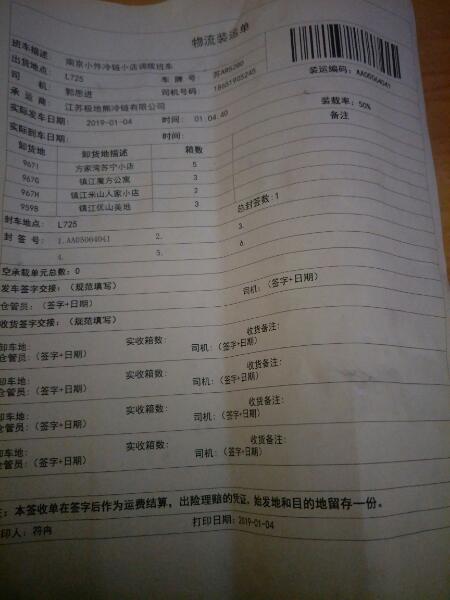 物流装运单
班车描述 南京小件冷链小店调拨班车
装运编码: AA05064041
出货地点: L725 车牌号: 苏A8S260
司机: 郭思进 司机号码: 18651905245
承运商: 江苏极地熊冷链有限公司 装载率: 50%
实际发车日期: 2019-01-04 时间: 01:04:40 备注
实际到车日期: 时间:
卸货地 卸货地描述 箱数
967I 方家湾苏宁小店 5
967G 镇江魔方公寓 3
967H 镇江米山人家小店 2
959B 镇江优山美地 3
封车地点: L725 总封签数: 1
封签号: 1.AA05064041 2. 3.
4. 5. 6.
空承载单元总数: 0
发车签字交接: (规范填写)
仓管员: (签字+日期) 司机: (签字+日期)
收货签字交接: (规范填写)
卸车地: 实收箱数: 收货备注:
仓管员: (签字+日期) 司机: (签字+日期)
卸车地: 实收箱数: 收货备注:
仓管员: (签字+日期) 司机: (签字+日期)
卸车地: 实收箱数: 收货备注:
仓管员: (签字+日期) 司机: (签字+日期)
卸车地: 实收箱数: 收货备注:
仓管员: (签字+日期) 司机: (签字+日期)
注: 本签收单在签字后作为运费结算, 出险理赔的凭证, 始发地和目的地留存一份。
打印人: 符冉 打印日期: 2019-01-04